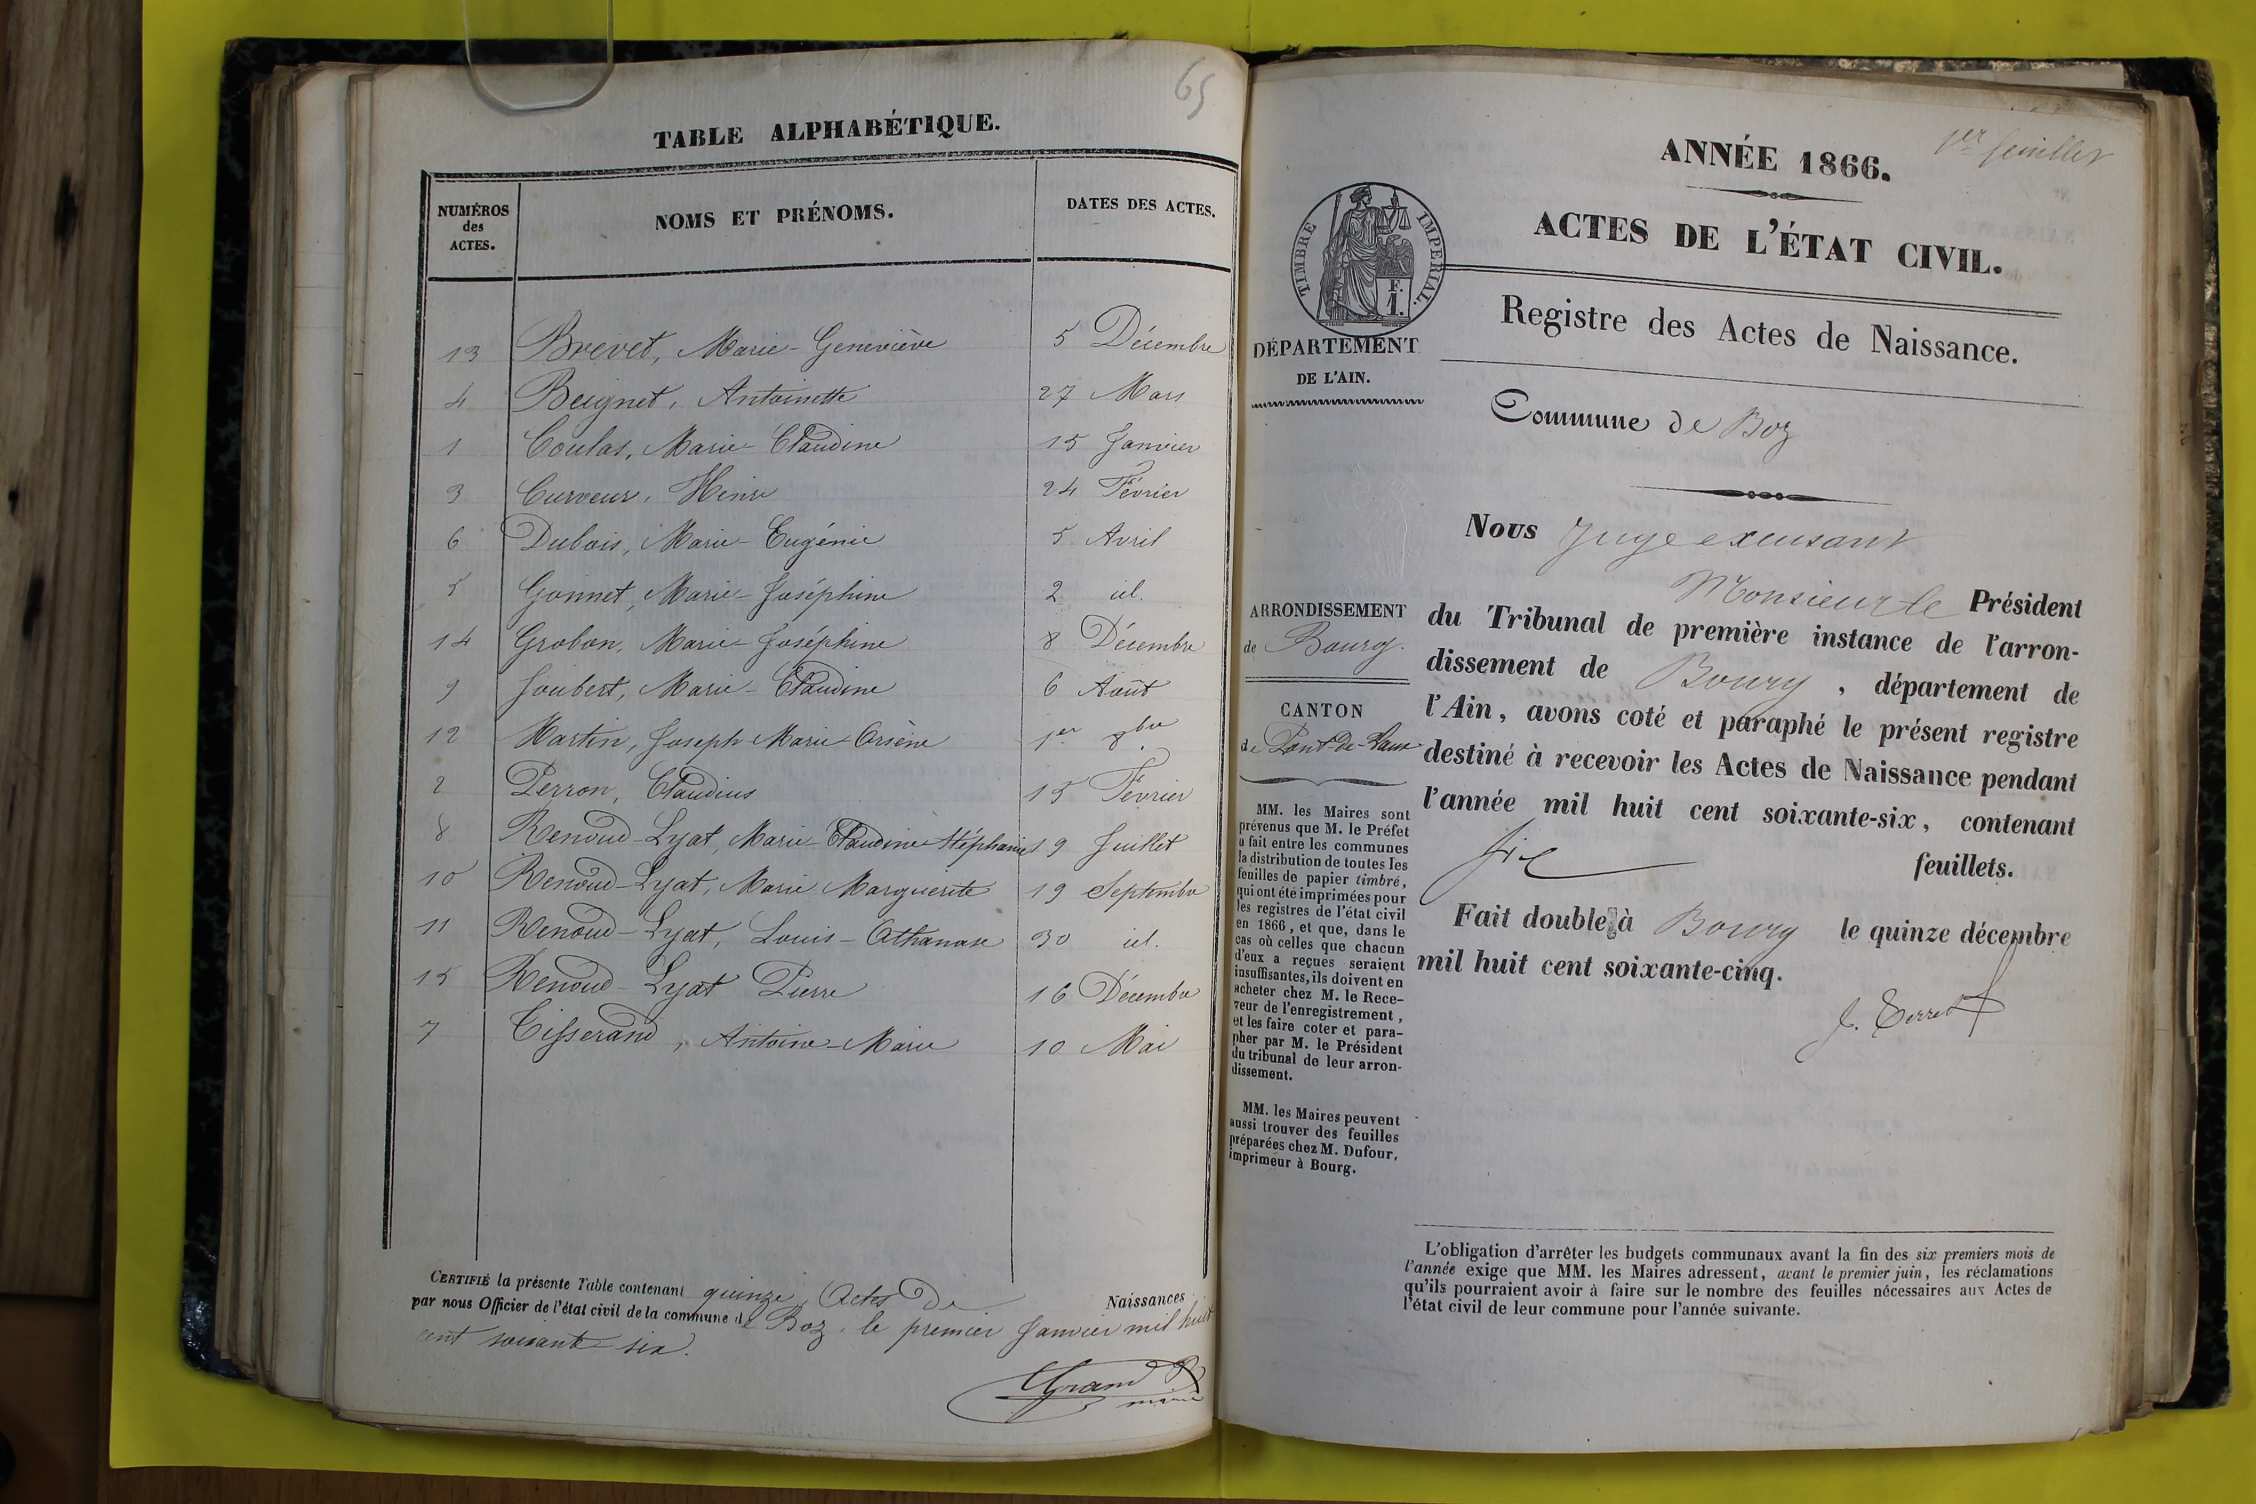 65
TABLE ALPHABÉTIQUE.
NUMÉROS des ACTES. NOMS ET PRÉNOMS. DATES DES ACTES.
13 Brevet, Marie-Geneviève 5 Décembre
4 Beignet, Antoinette 27 Mars
1 Coulas, Marie-Claudine 15 Janvier
3 Curveur, Henri 24 Février
6 Dubois, Marie-Eugénie 5 Avril
5 Gonnet, Marie-Joséphine 2 id.
14 Grobon, Marie-Joséphine 8 Décembre
9 Joubert, Marie-Claudine 6 Août
12 Martin, Joseph-Marie-Arsène 1er 8bre
2 Perron, Claudius 15 Février
8 Renoud-Lyat, Marie-Claudine-Stéphanie 19 Juillet
10 Renoud-Lyat, Marie-Marguerite 19 Septembre
11 Renoud-Lyat, Louis-Athanase 30 id.
15 Renoud-Lyat Pierre 16 Décembre
7 Tisserand, Antoine-Marie 10 Mai
CERTIFIÉ la présente Table contenant quinze Actes de Naissances
par nous Officier de l'état civil de la commune de Boz, le premier Janvier mil huit
cent soixante six.
Grand
maire
1er feuillet
ANNÉE 1866.
ACTES DE L'ÉTAT CIVIL.
TIMBRE IMPÉRIAL.
F.
1.
Registre des Actes de Naissance.
DÉPARTEMENT
DE L'AIN.
Commune de Boz
ARRONDISSEMENT
de Bourg.
CANTON
de Pont-de-Vaux
MM. les Maires sont
prévenus que M. le Préfet
a fait entre les communes
la distribution de toutes les
feuilles de papier timbré,
qui ont été imprimées pour
les registres de l'état civil
en 1866, et que, dans le
cas où celles que chacun
d'eux a reçues seraient
insuffisantes, ils doivent en
acheter chez M. le Rece-
veur de l'enregistrement,
et les faire coter et para-
pher par M. le Président
du tribunal de leur arron-
dissement.
MM. les Maires peuvent
aussi trouver des feuilles
préparées chez M. Dufour,
imprimeur à Bourg.
Nous Juge excusant
Monsieur le Président
du Tribunal de première instance de l'arron-
dissement de Bourg, département de
l'Ain, avons coté et paraphé le présent registre
destiné à recevoir les Actes de Naissance pendant
l'année mil huit cent soixante-six, contenant
six feuillets.
Fait double à Bourg le quinze décembre
mil huit cent soixante-cinq.
L'obligation d'arrêter les budgets communaux avant la fin des six premiers mois de
l'année exige que MM. les Maires adressent, avant le premier juin, les réclamations
qu'ils pourraient avoir à faire sur le nombre des feuilles nécessaires aux Actes de
l'état civil de leur commune pour l'année suivante.